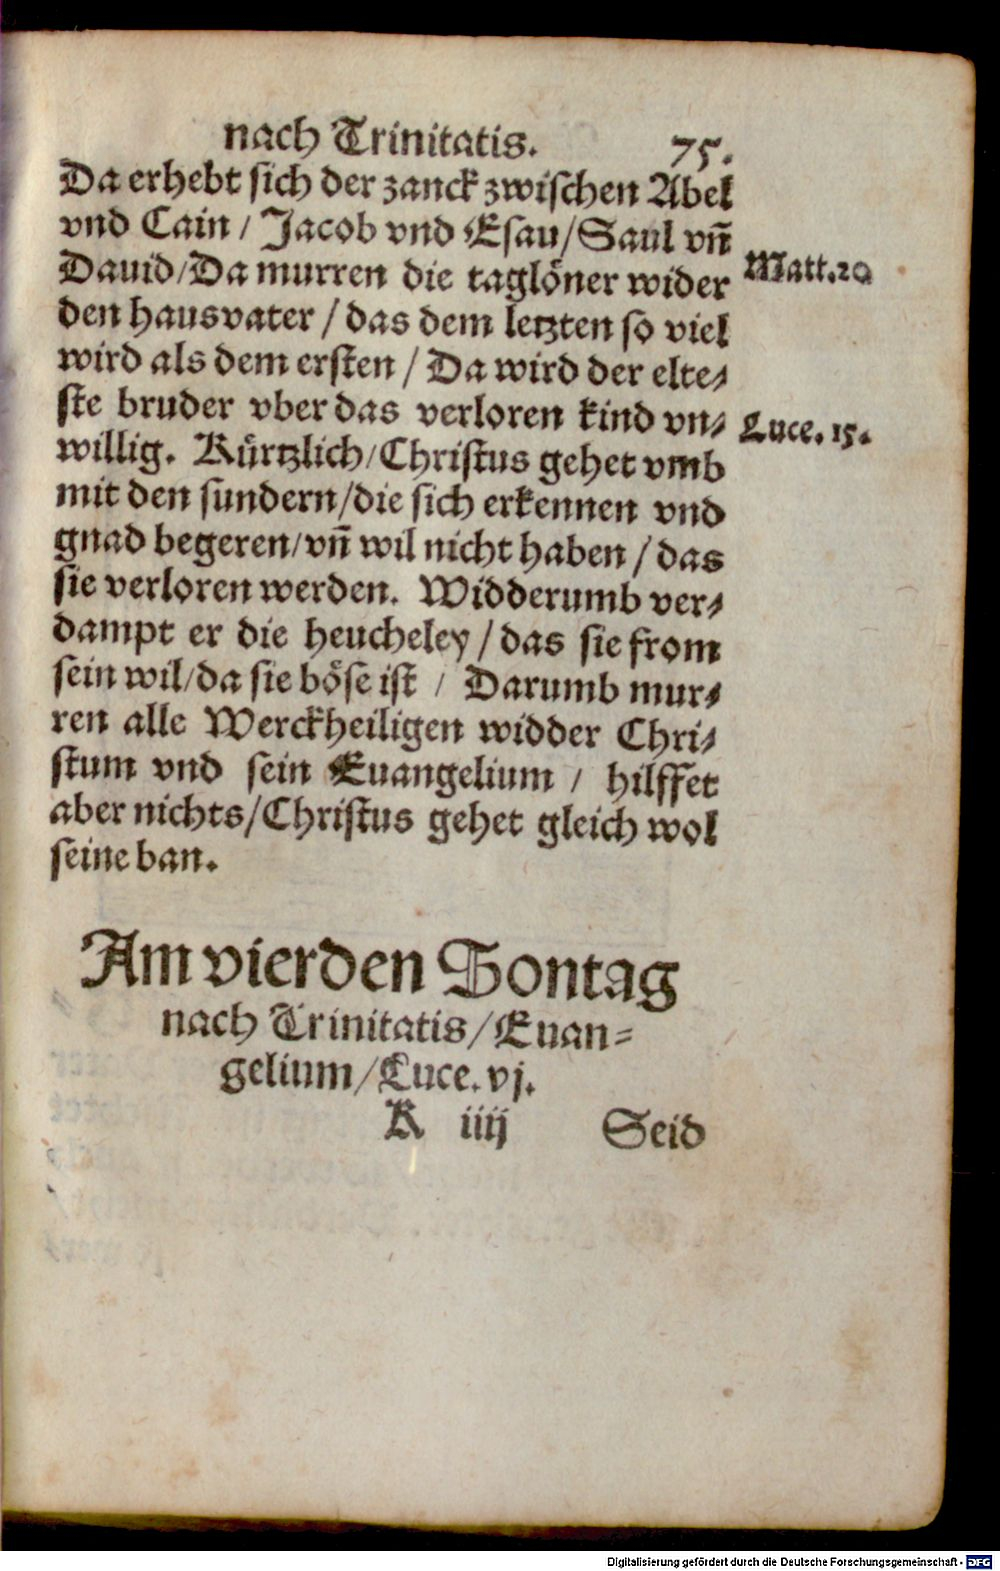 nach Trinitatis. 75.
Da erhebt sich der zanck zwischen Abel
vnd Cain / Jacob vnd Esau / Saul vñ
Dauid / Da murren die taglöner wider
Matt. 20
den hausvater / das dem letzten so viel
wird als dem ersten / Da wird der elte⸗
ste bruder vber das verloren kind vn⸗
Luce. 15.
willig. Kürtzlich / Christus gehet vmb
mit den sundern / die sich erkennen vnd
gnad begeren / vñ wil nicht haben / das
sie verloren werden. Widderumb ver⸗
dampt er die heucheley / das sie from
sein wil / da sie böse ist / Darumb mur⸗
ren alle Werckheiligen widder Chri⸗
stum vnd sein Euangelium / hilffet
aber nichts / Christus gehet gleich wol
seine ban.
Am vierden Sontag
nach Trinitatis / Euan⸗
gelium / Luce. vj.
K iiij Seid
Digitalisierung gefördert durch die Deutsche Forschungsgemeinschaft - DFG